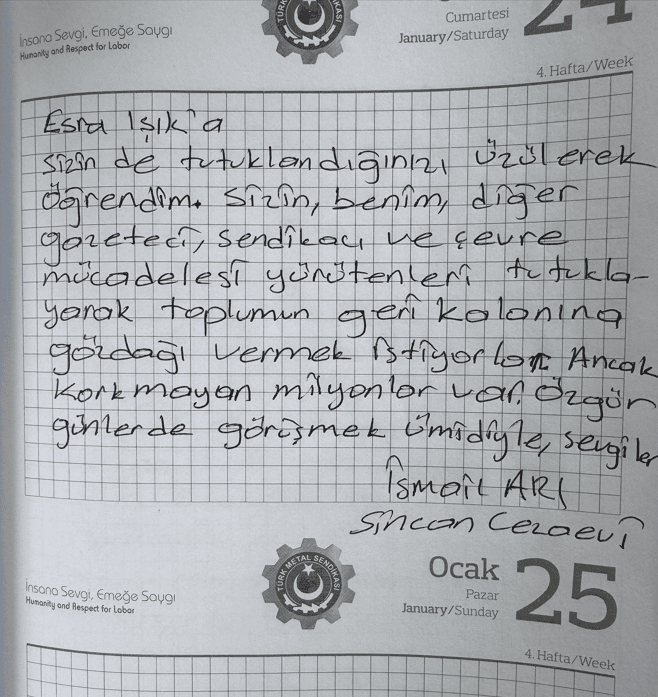 İnsana Sevgi, Emeğe Saygı
Humanity and Respect for Labor
TÜRK
KASI
Cumartesi
January/Saturday
24
4. Hafta/Week
Esra Işık'a
sizin de tutuklandığınızı üzülerek
öğrendim. Sizin, benim, diğer
gazeteci, sendikacı ve çevre
mücadelesi yürütenleri tutukla-
yarak toplumun geri kalanına
gözdağı vermek istiyorlar. Ancak
korkmayan milyonlar var. Özgür
günlerde görüşmek ümidiyle, sevgiler
İsmail ARI
Sincan Cezaevi
İnsana Sevgi, Emeğe Saygı
Humanity and Respect for Labor
TÜRK METAL SENDİKASI
Ocak
Pazar
January/Sunday
25
4. Hafta/Week